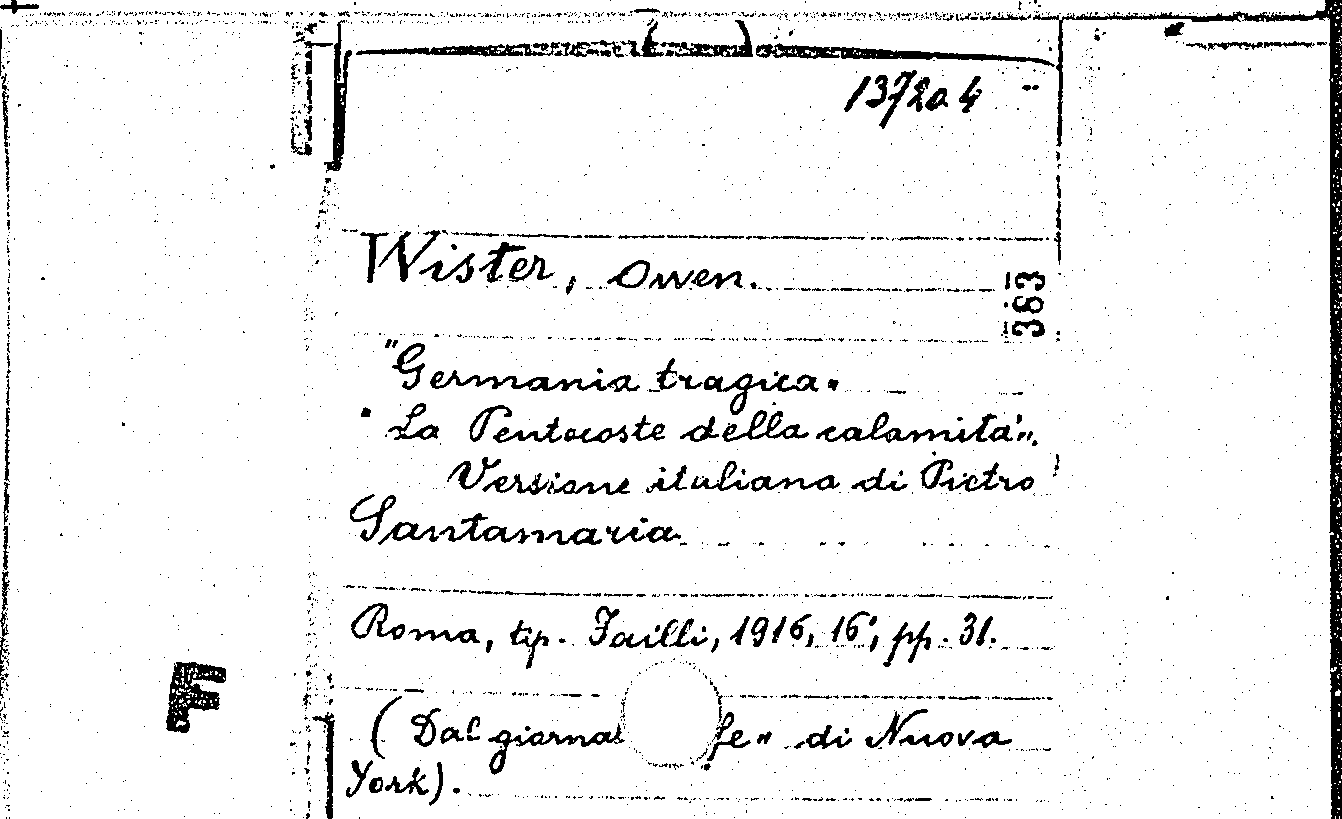 1372a4
Wister, Owen.
363
"Germania tragica.
" La Pentecoste della calamità".
Versione italiana di Pietro
Santamaria.
Roma, tip. Failli, 1916, 16°, pp. 31.
(Dal giorna fe" di Nuova
York).
F